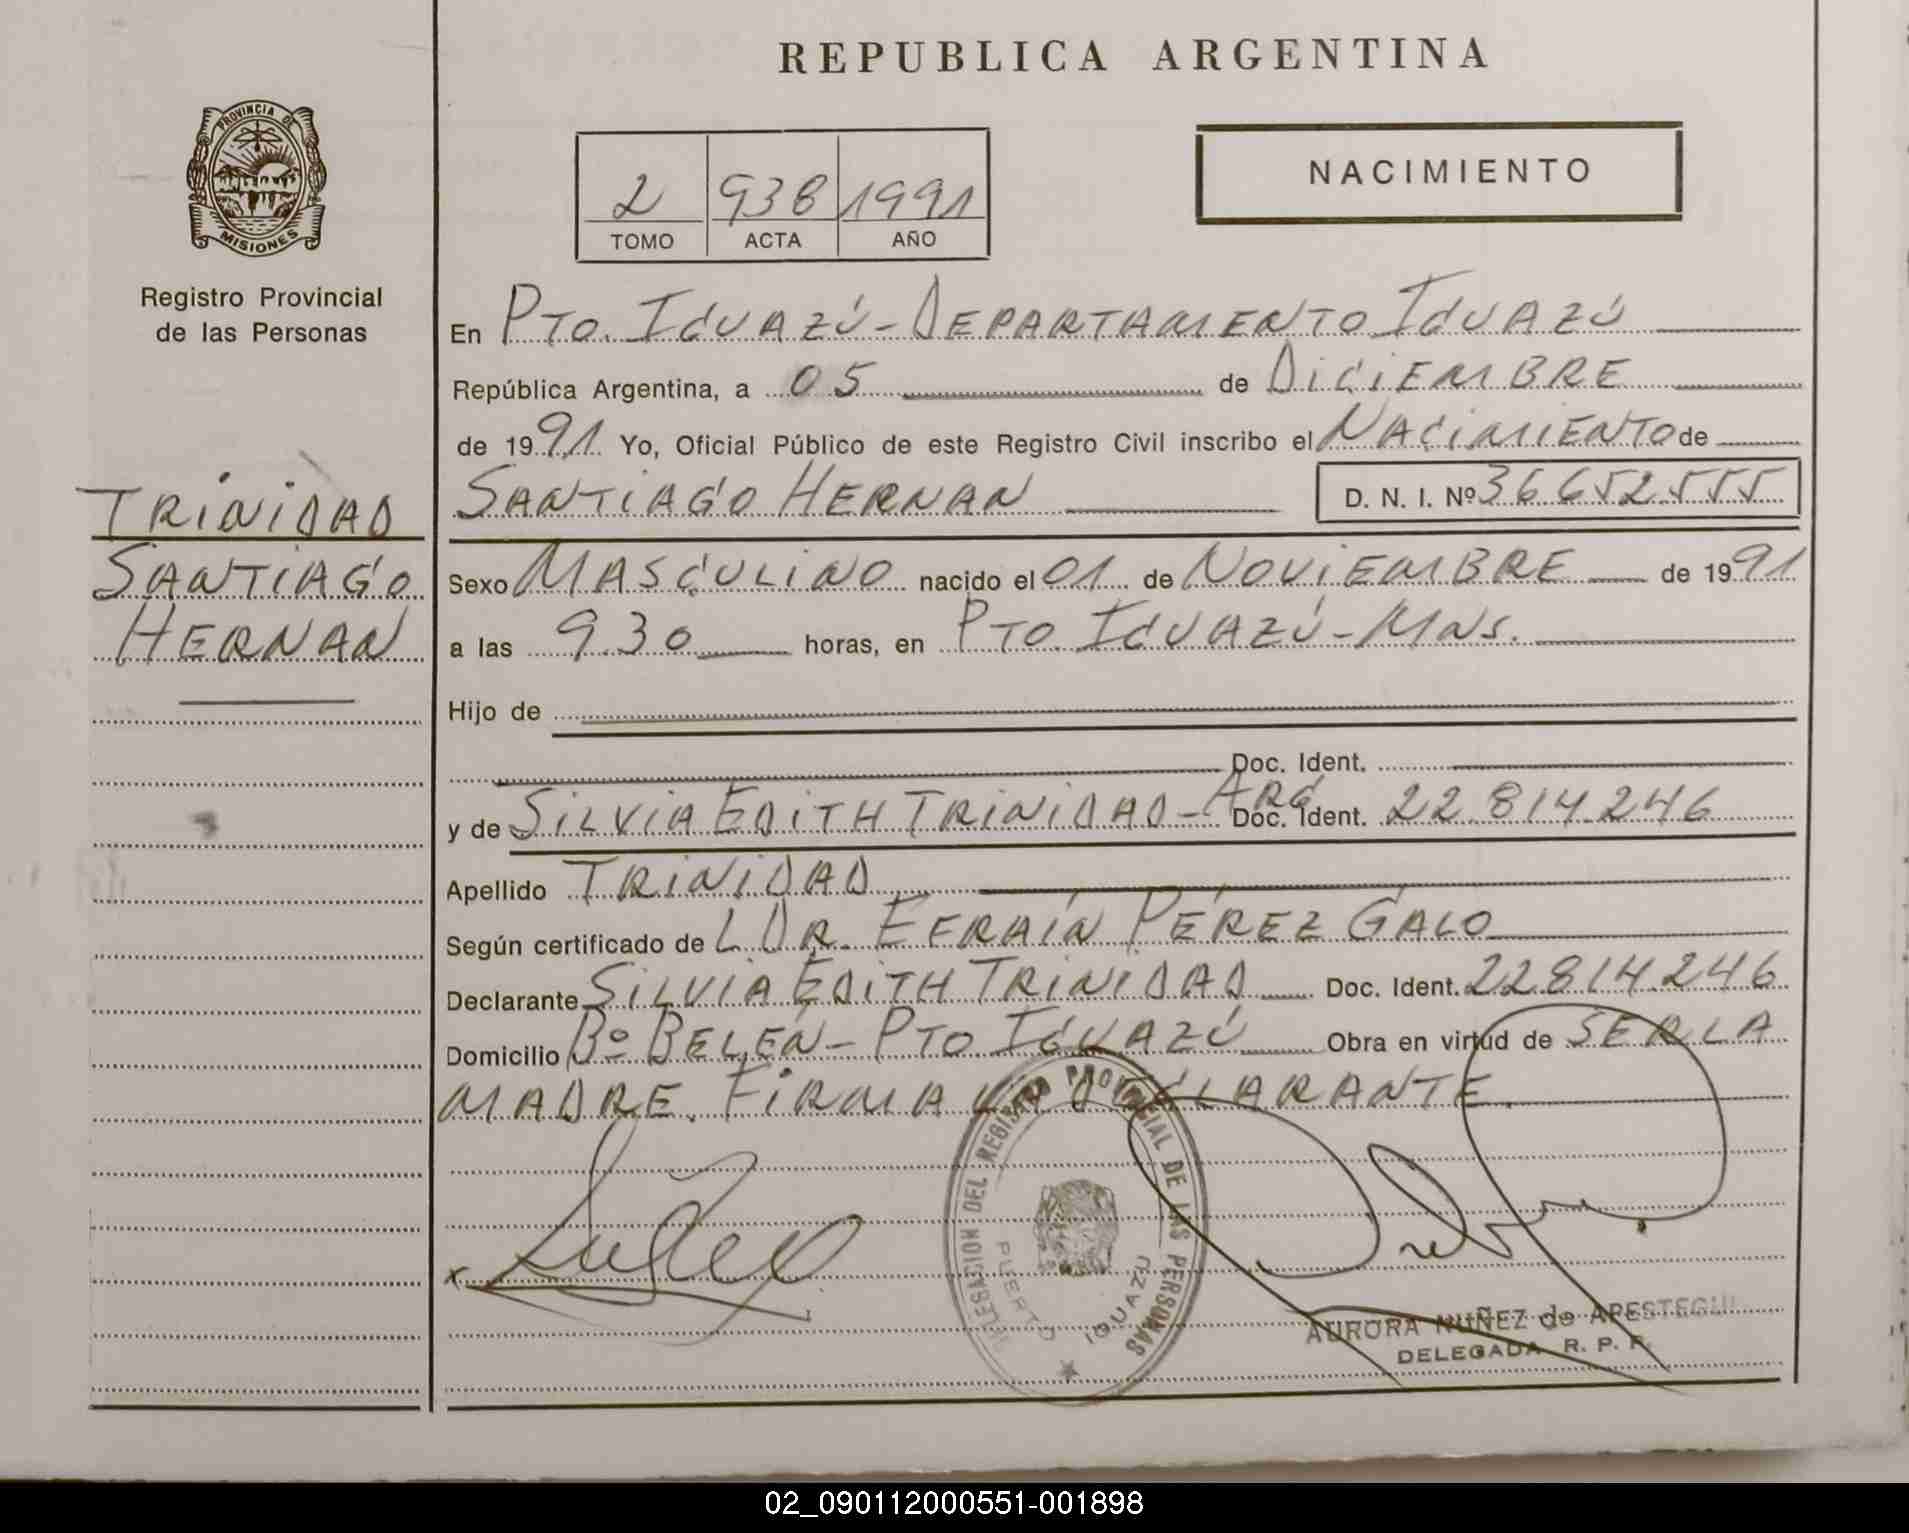 REPUBLICA ARGENTINA
PROVINCIA DE
MISIONES
Registro Provincial
de las Personas
2 938 1991
TOMO ACTA AÑO
NACIMIENTO
En PTO. IGUAZÚ - DEPARTAMENTO IGUAZÚ
República Argentina, a 05 de DICIEMBRE
de 1991 Yo, Oficial Público de este Registro Civil inscribo el NACIMIENTO de
SANTIAGO HERNAN D. N. I. Nº 36652555
TRINIDAD
SANTIAGO
HERNAN
Sexo MASCULINO nacido el 01 de NOVIEMBRE de 1991
a las 9.30 horas, en PTO. IGUAZÚ - MNS.
Hijo de
Doc. Ident.
y de SILVIA EDITH TRINIDAD - ARG Doc. Ident. 22.814.246
Apellido TRINIDAD
Según certificado de L DR. EFRAÍN PÉREZ GALO
Declarante SILVIA EDITH TRINIDAD Doc. Ident. 22814246
Domicilio Bº BELÉN - PTO IGUAZÚ Obra en virtud de SER LA
MADRE. FIRMA LA DECLARANTE.
DELEGACION DEL REGISTRO PROVINCIAL DE LAS PERSONAS
PUERTO IGUAZU
AURORA NUÑEZ de APESTEGUI
DELEGADA R. P. P.
02_090112000551-001898